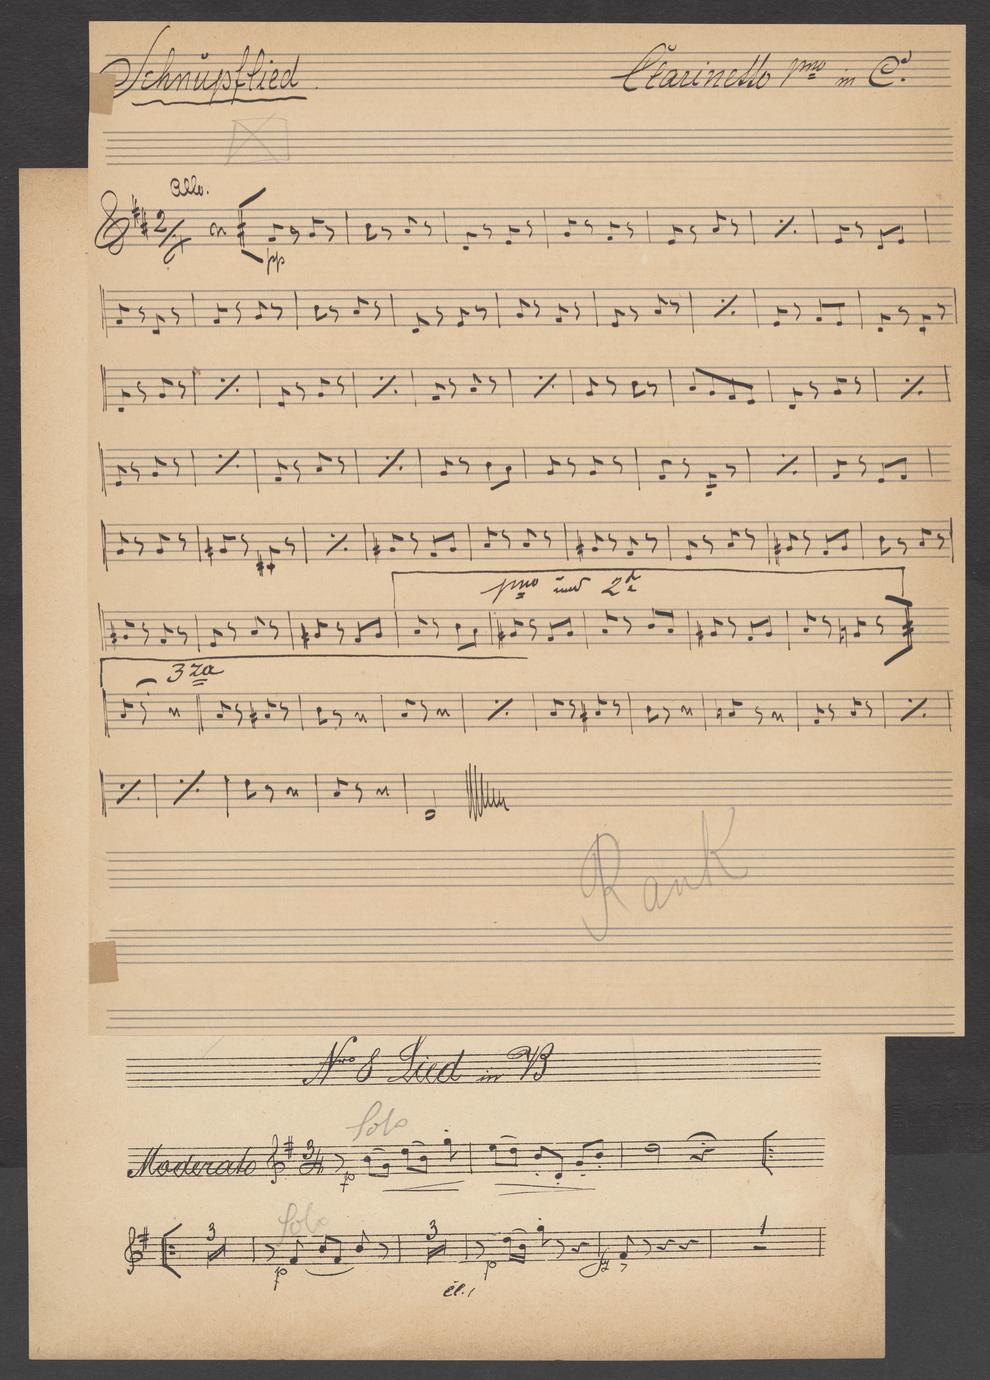 Schnupflied. Clarinetto pmo in C.
Allo.
2/4
pp
pmo und 2d
3za
Rank
Nro 8 Lied in B
Solo
Moderato 3/4
p
3 Solo 3 1
p p